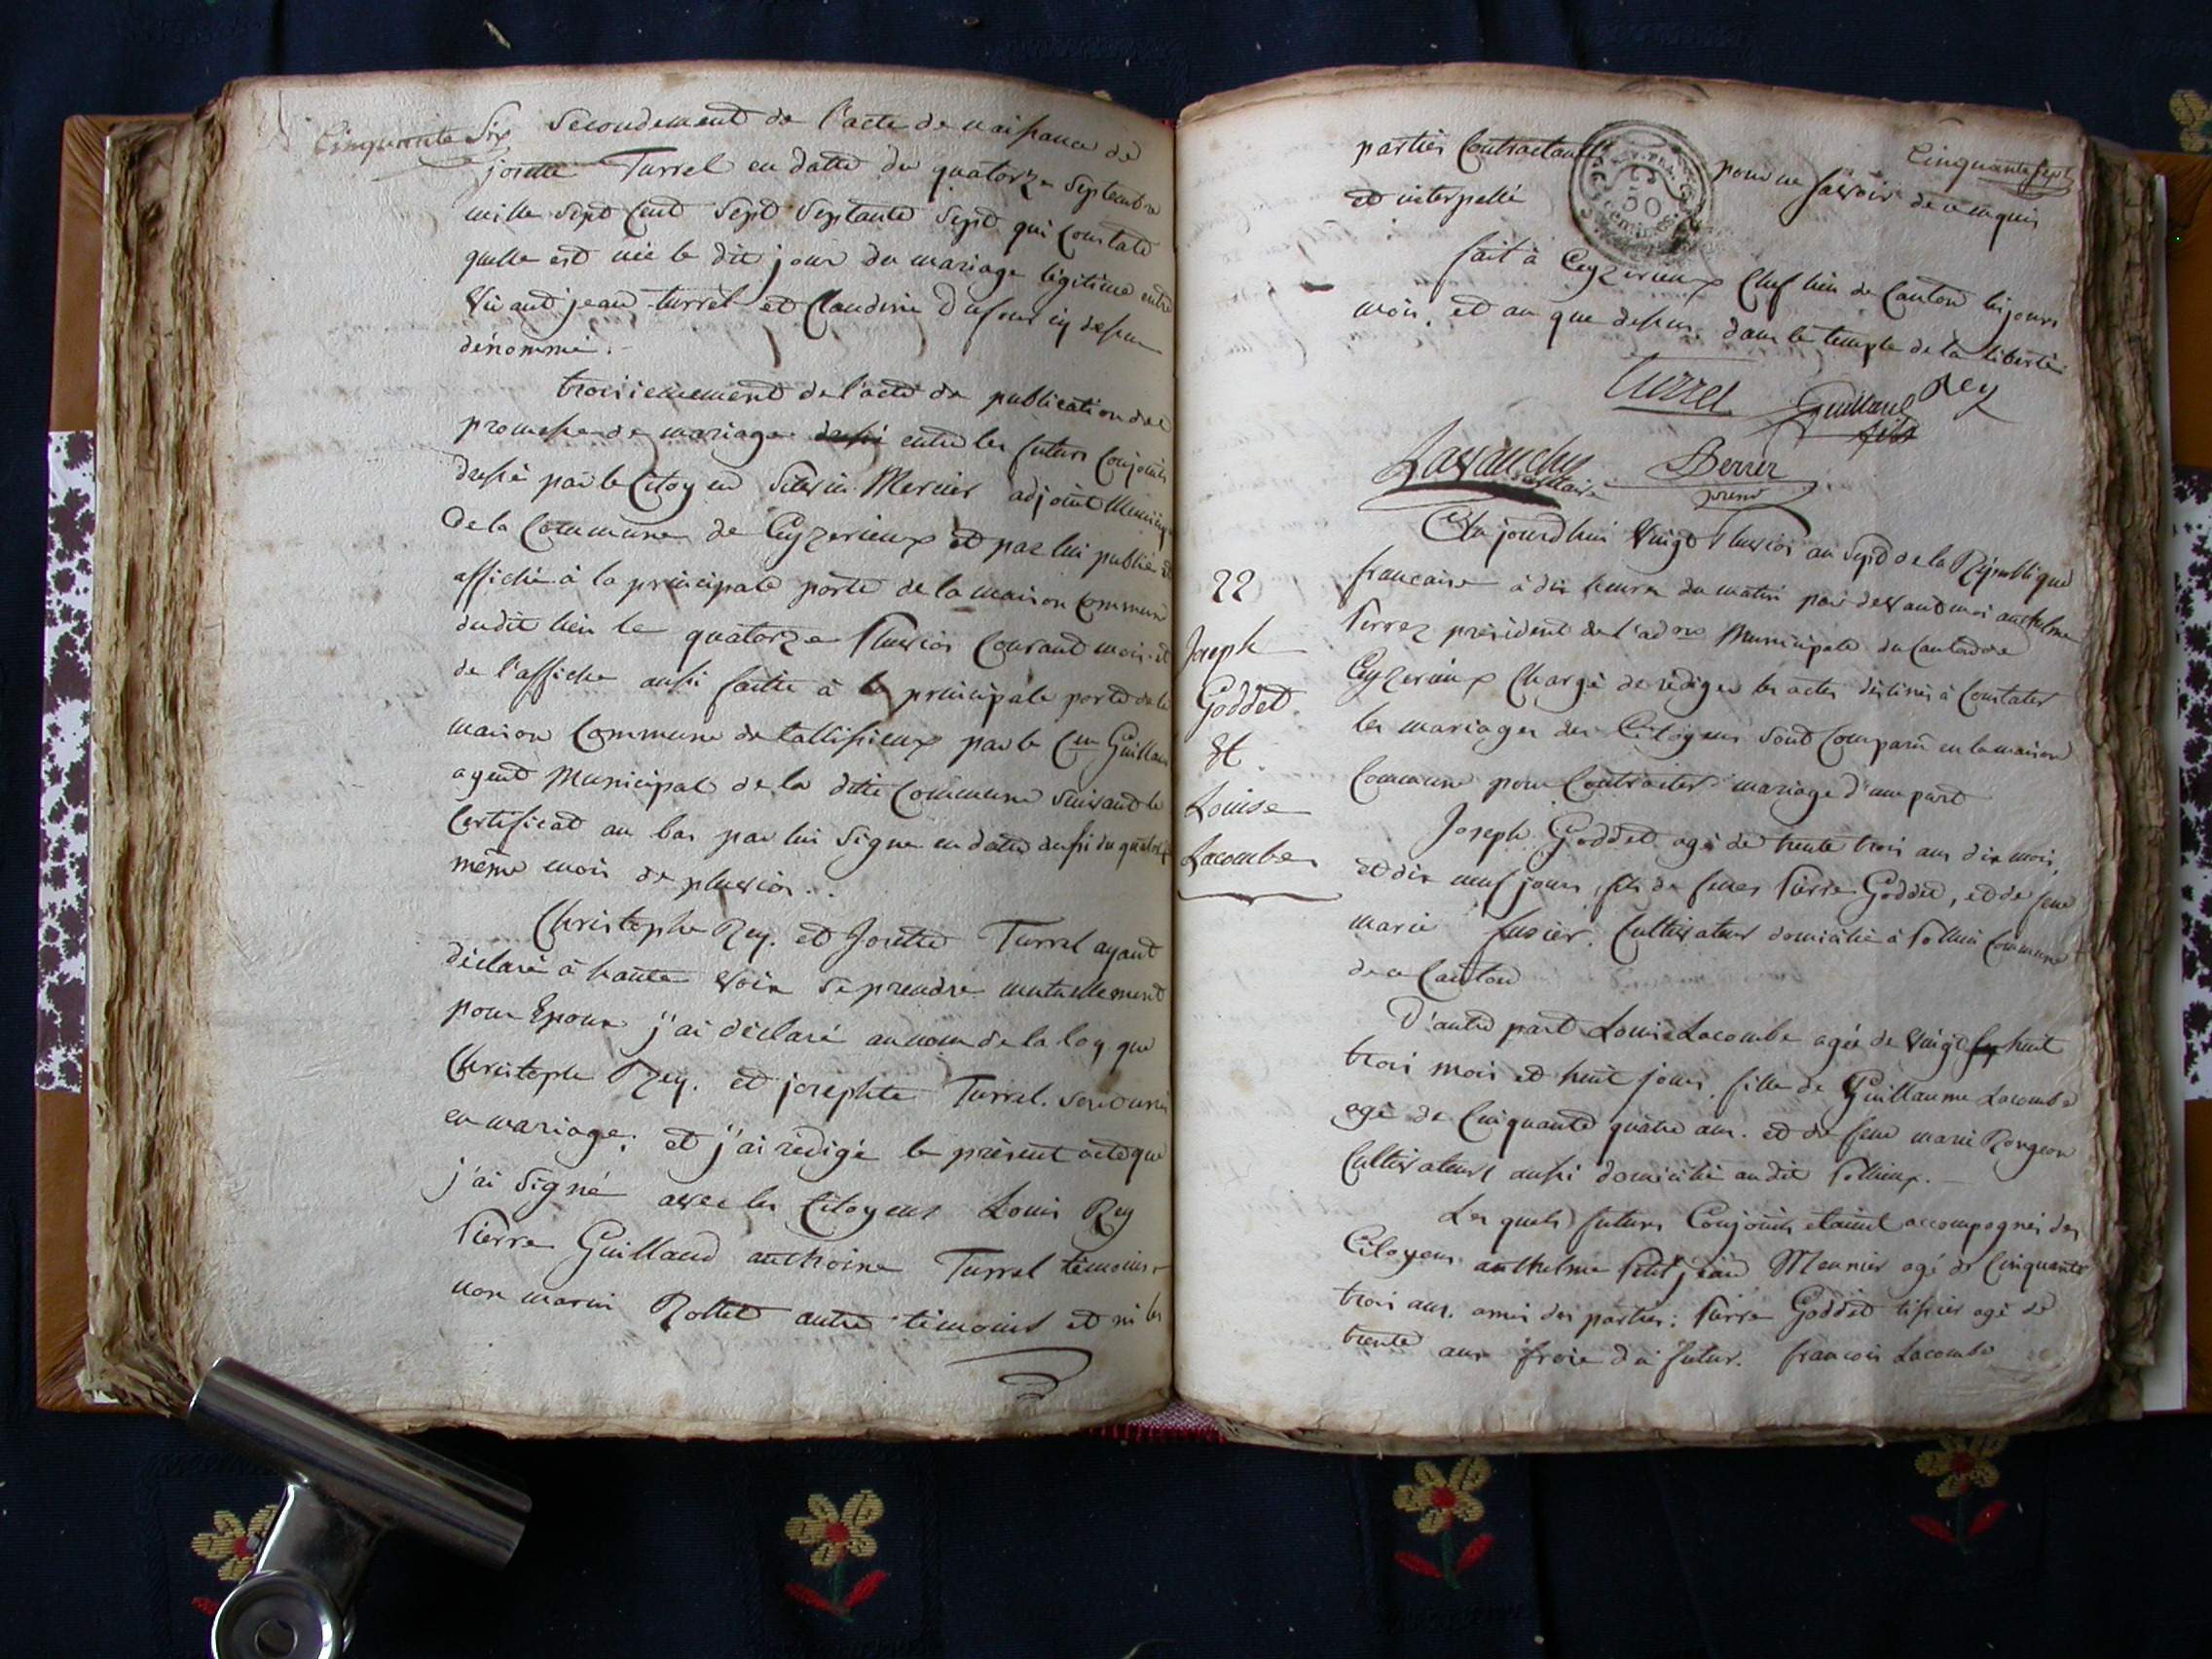 Cinquante Six
Secondement de l'acte de naissance de
josette Turrel en datte du quatorze Septembre
mille Sept Cent Sept Septante Sept qui Constate
quelle est née le dit jour du mariage légitime entre
Vivant jean turrel et Claudine Dufour cy dessus
dénommé.
troisiemement de l'acte de publication de
promesse de mariage dressé entre les futurs Conjoints
dressé par le Citoyen Mercier adjoint Municipal
De la Commune de Ceyzerieux et par lui publié et
affiché à la principale porte de la maison Commune
dudit lieu le quatorze Pluviose Courant mois et
de l'affiche aussi faitte à la principale porte de la
maison Commune de tallissieux par le Cen Guillaud
agent Municipal de la ditte Commune suivant le
Certificat au bas par lui Signé en datte aussi du quatorze
même mois de pluviose..
Christophe Rey. et Josette Turrel ayant
déclaré à haute voix se prendre mutuellement
pour Epoux j'ai déclaré au nom de la loy que
Christophe Rey. et josephte Turrel. sont unis
en mariage. et j'ai rédigé le présent acte que
j'ai Signé avec les Citoyens Louis Rey
Pierre Guillaud anthoine Turrel témoins
non marin Rollet autre témoins et ni les
Cinquante sept
parties Contractantes pour ne savoir de ce enquis
et interpellé
fait à Ceyzerieux Chef lieu de Canton les jours
mois, et an que dessus. dans le temple de la liberté
Turrel Guillaud fils Rey
Lavanchy secrétaire Perrer présid
Aujourd'hui Vingt Pluviose an Sept de la République
francaise à dix heures du matin par devant moi anthelme
Perrez président de l'adon Municipale du Canton de
Ceyzerieux Chargé de rédiger les actes destinés à Constater
les mariages des Citoyens sont Comparu en la maison
Commune pour Contracter mariage d'une part
22
Joseph
Goddet
&
Louise
Lacombe
Joseph Goddet agé de trente trois ans dix mois,
et dix neuf jours, fils de feues Pierre Goddet, et de feue
marie fusier. Cultivateur domicilié à Pollieu Commune
de ce Canton
D'autre part Louise Lacombe agée de Vingt huit
trois mois et huit jours, fille de Guillaume Lacombe
agé de Cinquante quatre ans. et de feue marie Rongeon
Cultivateurs aussi domicilié au dit Pollieux.
Les quels futurs Conjoints étaient accompagnés des
Citoyens anthelme Petit jean Meunier agé de Cinquante
trois ans. amis des parties: Pierre Goddet tissier agé de
trente ans frere du futur. francois Lacombe